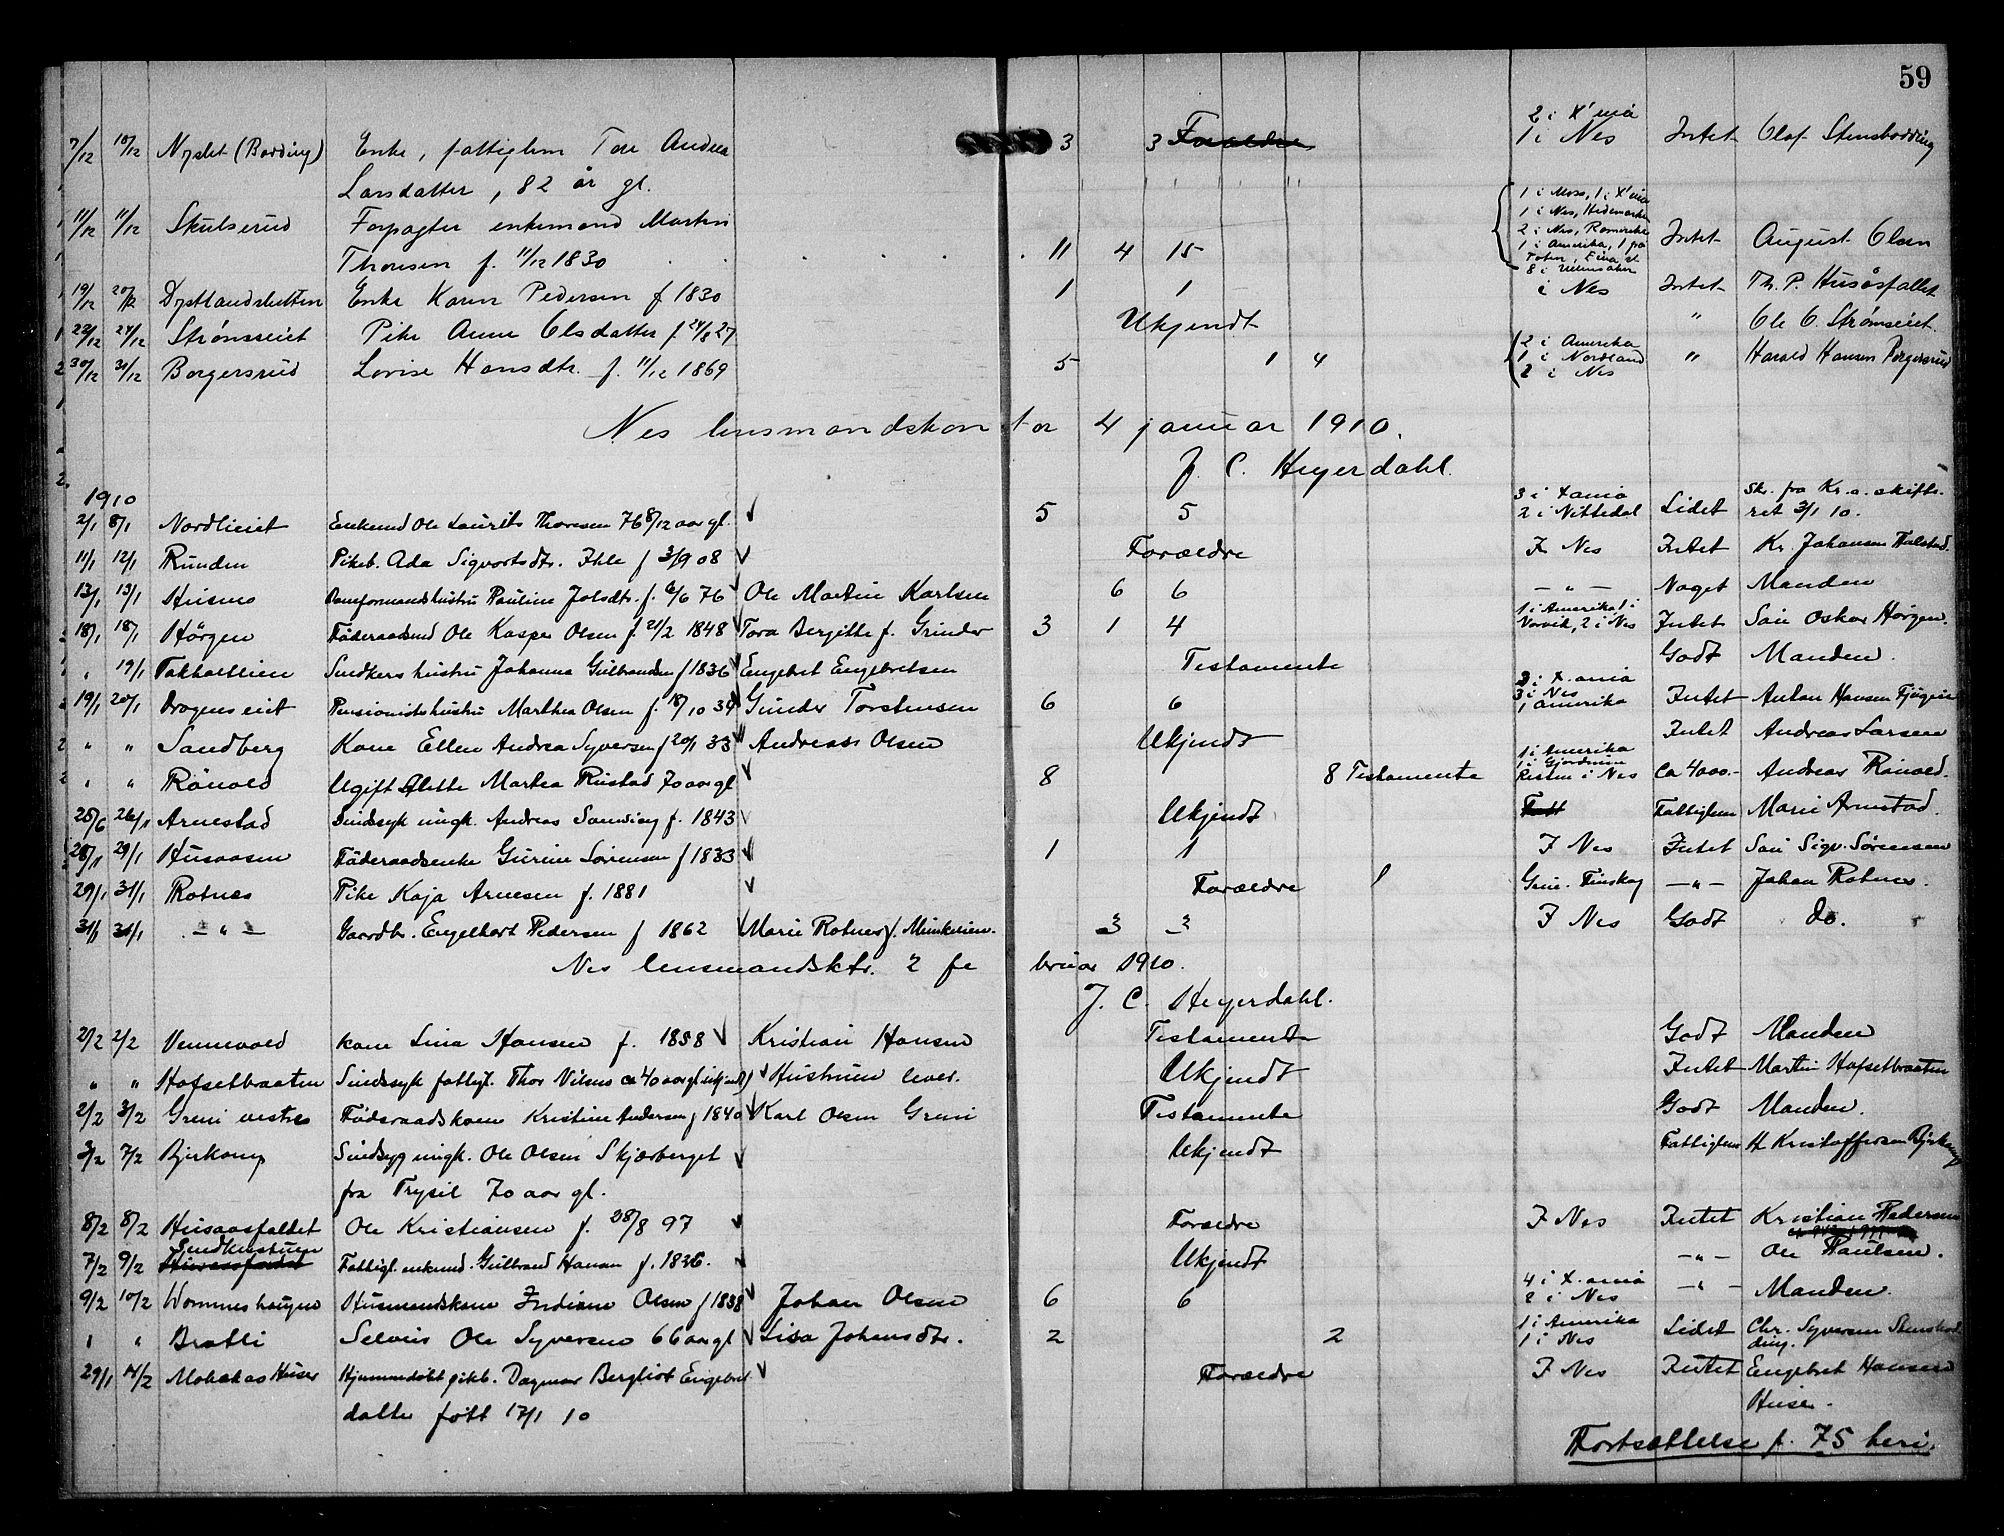 59
7/12 10/12 Nyslet (Bodding) Enke, fattiglem Tore Andrea 3 3 Forældre 2 i X'nia 1 i Nes Intet Olaf Stensbodding
Larsdatter, 82 år gl.
11/12 11/12 Skulserud Forpagter enkemand Martin 1 i Moss, 1 i X'nia
1 i Nes, Hedemarken
Thoresen f. 11/12 1830 11 4 15 2 i Nes, Romerike Intet August Olsen
1 i Amerika, 1 på
Toten,
8 i Ullensaker
19/12 20/12 Enke Karen Pedersen f 1830 1 1 i Nes Intet Th. P. Husåsfallet
22/12 24/12 Strømseiet Pike Anne Olsdatter f 24/8 27 Ukjendt " Ole O. Strømseiet.
30/12 31/12 Borgersrud Lovise Hansdtr. f. 11/12 1869 5 1 4 2 i Amerika 1 i Nordland 2 i Nes " Harald Hansen Borgersrud
Nes lensmandskontor 4 januar 1910.
J. C. Heyerdahl.
1910
2/1 8/1 Nordlieiet Enkemd Ole Laurits Thoresen 76 8/12 aar gl. 5 5 3 i Xania 2 i Nittedal Lidet Skr. fra Kr.a. skifteret 3/1 10.
11/1 12/1 Runden Pikeb. Ada Sigvartsdtr. Ihle f 3/9 08 Forældre I Nes Intet Kr. Johansen Halstad.
13/1 13/1 Husmo Pauline Jolsdtr. f. 6/6 76 Ole Martin Karlsen 6 6 — " — Noget Manden
18/1 18/1 Hörgen Föderaadsmd Ole Kasper Olsen f. 21/2 1848 Tora Bergitte f. Grinder 3 1 4 1 i Amerika 1 i Narvik, 2 i Nes Intet Søn Oskar Hörgen.
" 19/1 Snedkers hustru Johanna Gulbrandsen f 1836 Engebret Engebretsen Testamente Godt Manden.
19/1 20/1 Drogneseiet Pensionistshustru Marthea Olsen f. 18/10 39 Gunder Torstensen 6 6 2 i X.ania 3 i Nes 1 Amerika Intet Anton Hansen
" " Sandberg Kone Ellen Andrea Syversen f 20/1 33 Andreas Olsen Ukjendt Intet Andreas Larsen
" " Rånold Ugift Olette Martea Rustad 70 aar gl 8 8 Testamente 1 i Amerika 1 i Gjerdrum Resten i Nes Ca 4000.- Andreas Rånold.
25/6 26/1 Arnestad Sindssyk ungk. Andreas Sandvig f. 1843 Ukjendt Fattiglem Marie Arnestad.
28/1 29/1 Husaasen Föderaadsenke Gurine Sörensen f 1833 1 1 I Nes Intet Søn Sigv. Sörensen
29/1 31/1 Rotnes Pike Kaja Arnesen f. 1881 Forældre 1 Grue-Finskog — " — Johan Rotnes.
31/1 31/1 — " — Gaardbr. Engelhart Pedersen f 1862 Marie Rotnes f. Munkerien. 3 3 I Nes Godt do.
Nes lensmandsktr. 2 februar 1910.
J. C. Heyerdahl.
2/2 2/2 Vennevold kone Lina Hansen f. 1858 Kristian Hansen Testamente Godt Manden
" " Hofsetbraaten Sindssyk fattigl. Thor Nilsen ca 40 aar gl ukjendt Hustruen lever. Ukjendt Intet Martin Hofsetbraaten
2/2 3/2 Greni vestre Föderaadskone Kristine Andersen f 1840 Karl Olsen Greni Testamente Godt Manden.
3/2 7/2 Bjerkeng Sindssyg ungk. Ole Olsen Skjærberget Ukjendt Fattiglem H Kristoffersen Bjerkeng
fra Trysil 70 aar gl.
8/2 8/2 Husaasfaldet Ole Kristiansen f. 28/8 97 Forældre I Nes Intet Kristian Pedersen
7/2 9/2 Snedkerstuen Fattigl. enkemd. Gulbrand Hansen f. 1836. Ukjendt — " — Ole Paulsen.
9/2 10/2 Wormneshaugen Husmandskone Indiane Olsen f 1838 Johan Olsen 6 6 4 i X.ania 2 i Nes — " — Manden.
" " Bratli Selveier Ole Syversen 66 aar gl Lisa Johansdtr. 2 2 1 i Amerika 1 i Nes Lidet Chr. Syversen Stensbodding.
29/1 14/2 Huser Hjemmedöbt pikeb. Dagmar Bergliot Engebret Forældre I Nes Intet Engebret Hansen
datter född 17/1 10 Huser.
Fortsættelse f. 75 heri.